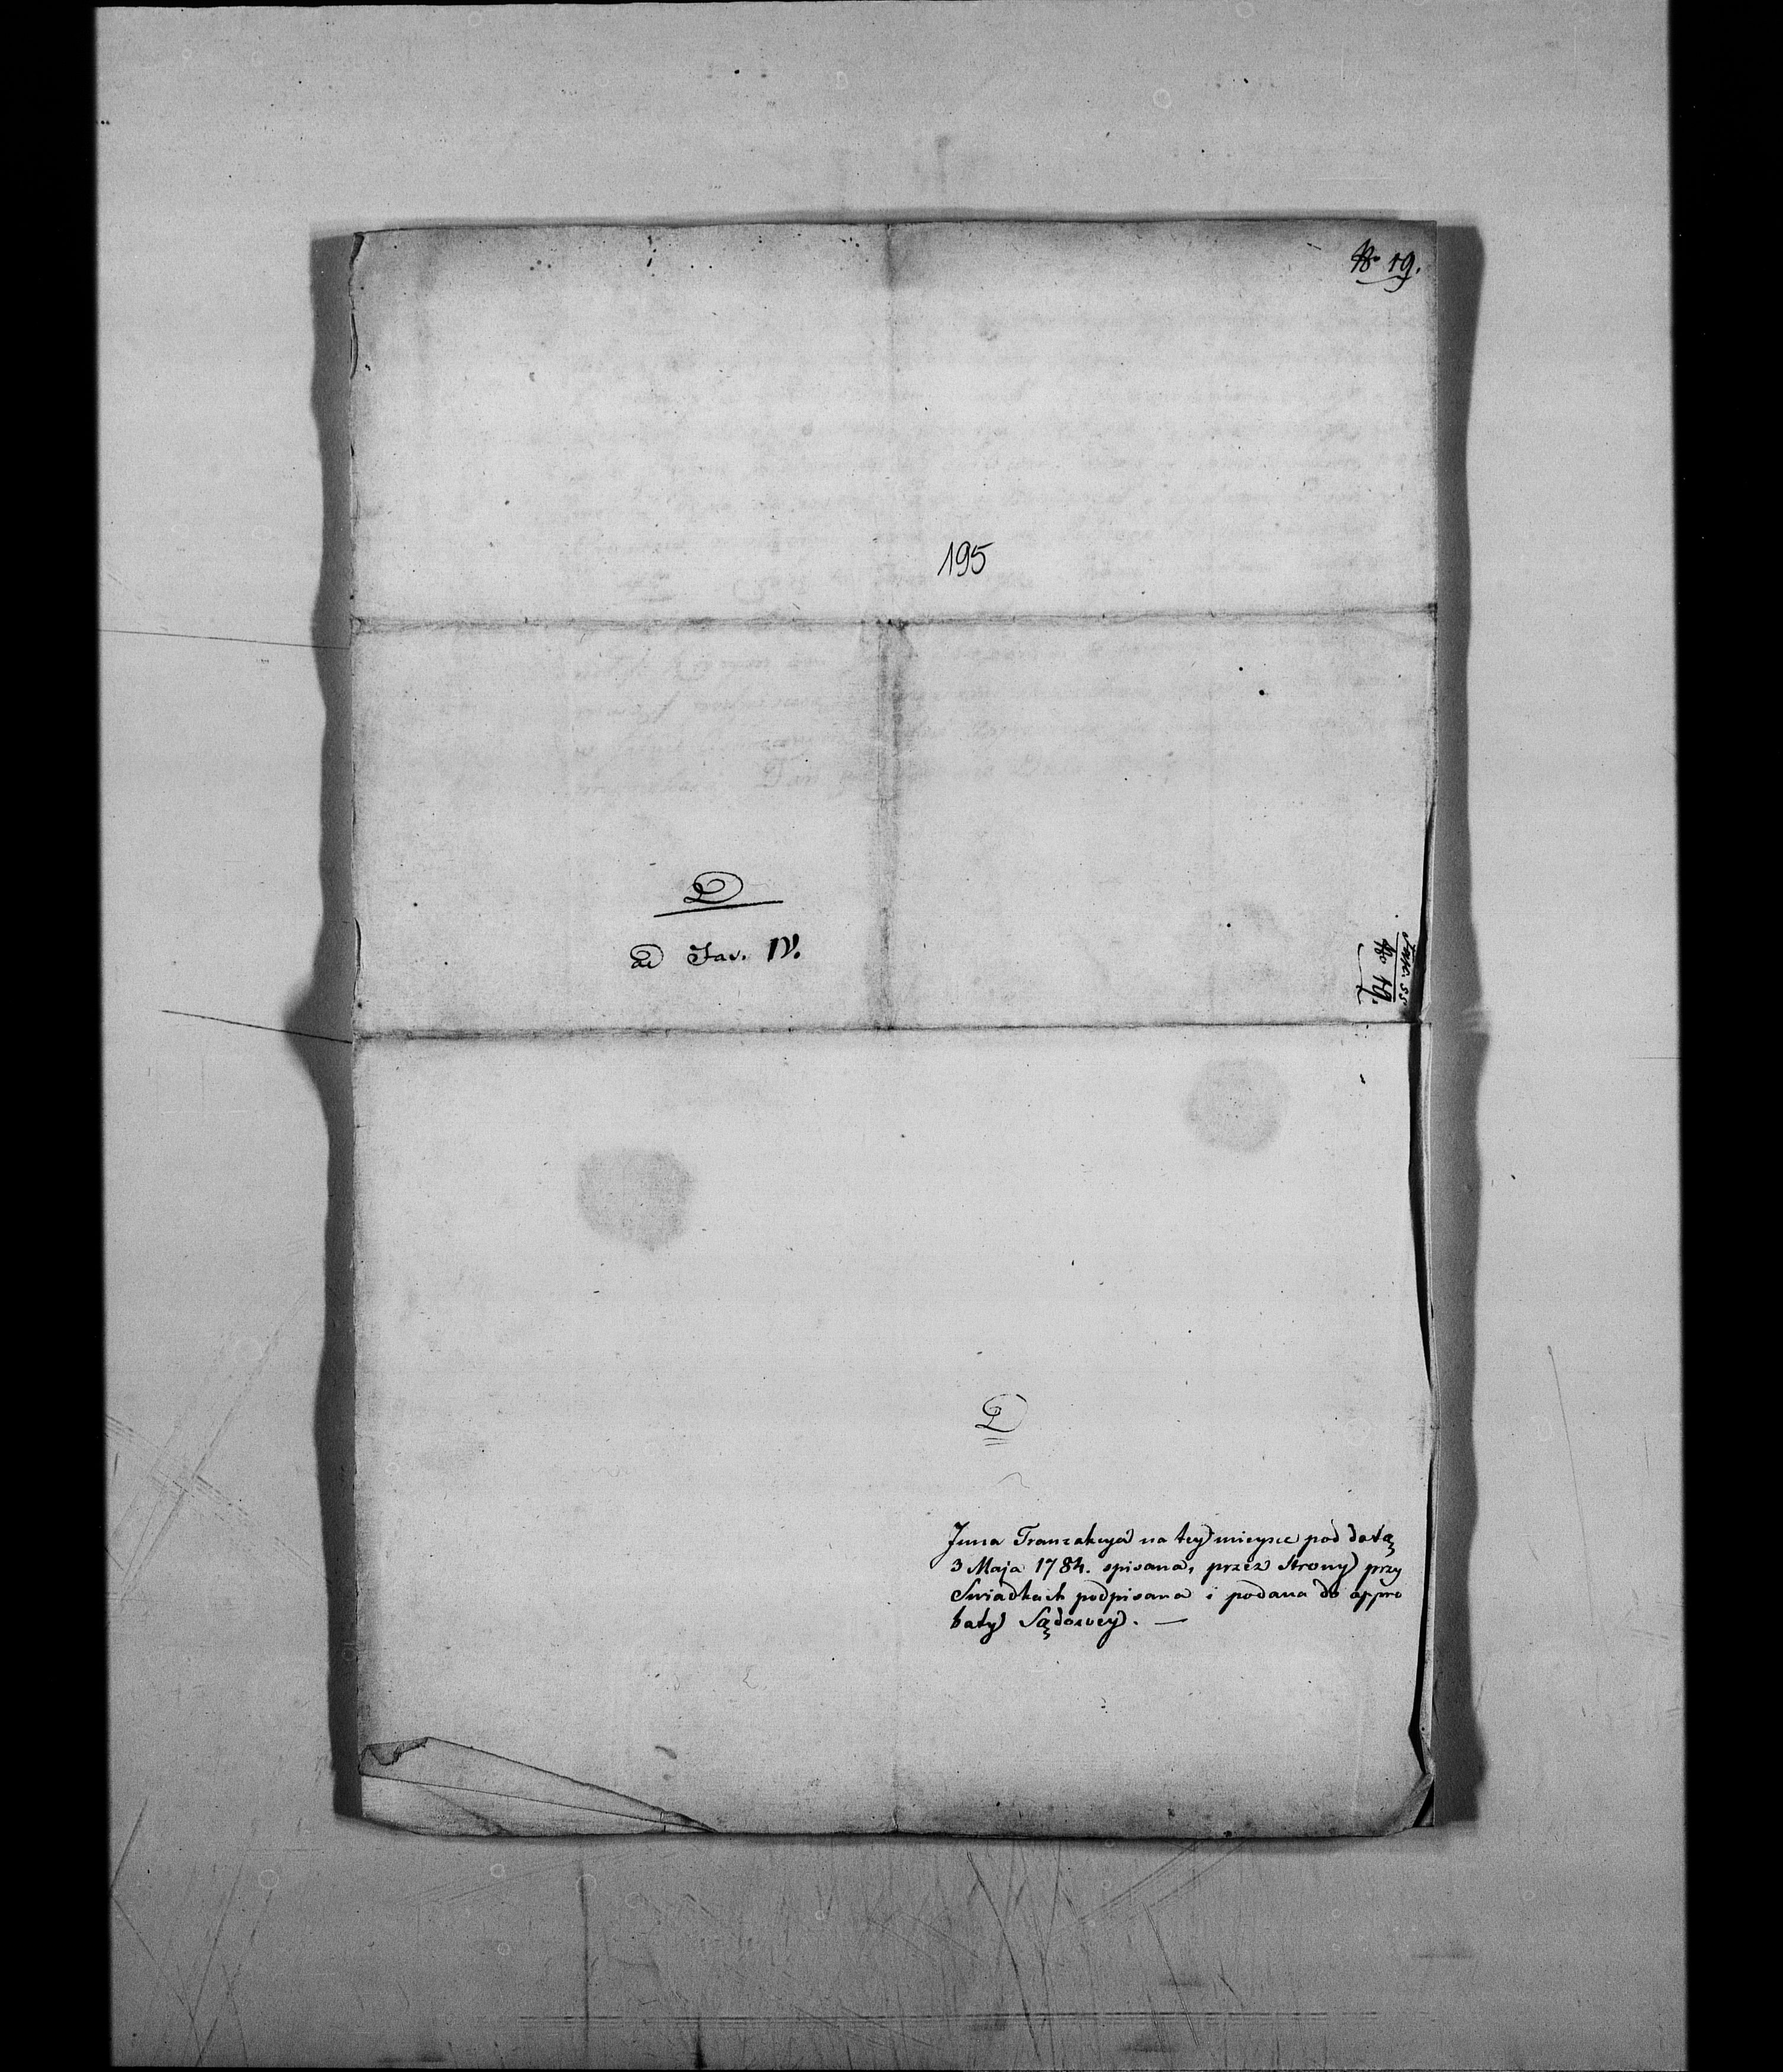 No 19.
195
D
ad Fas. IV.
Fasc. 55
No 19.
D
Inna Tranzakcya na tey mieysce pod datą
3 Maja 1784. spisana, przez Strony przy
Swiadkach podpisana i podana do appro
baty Sądowey. —